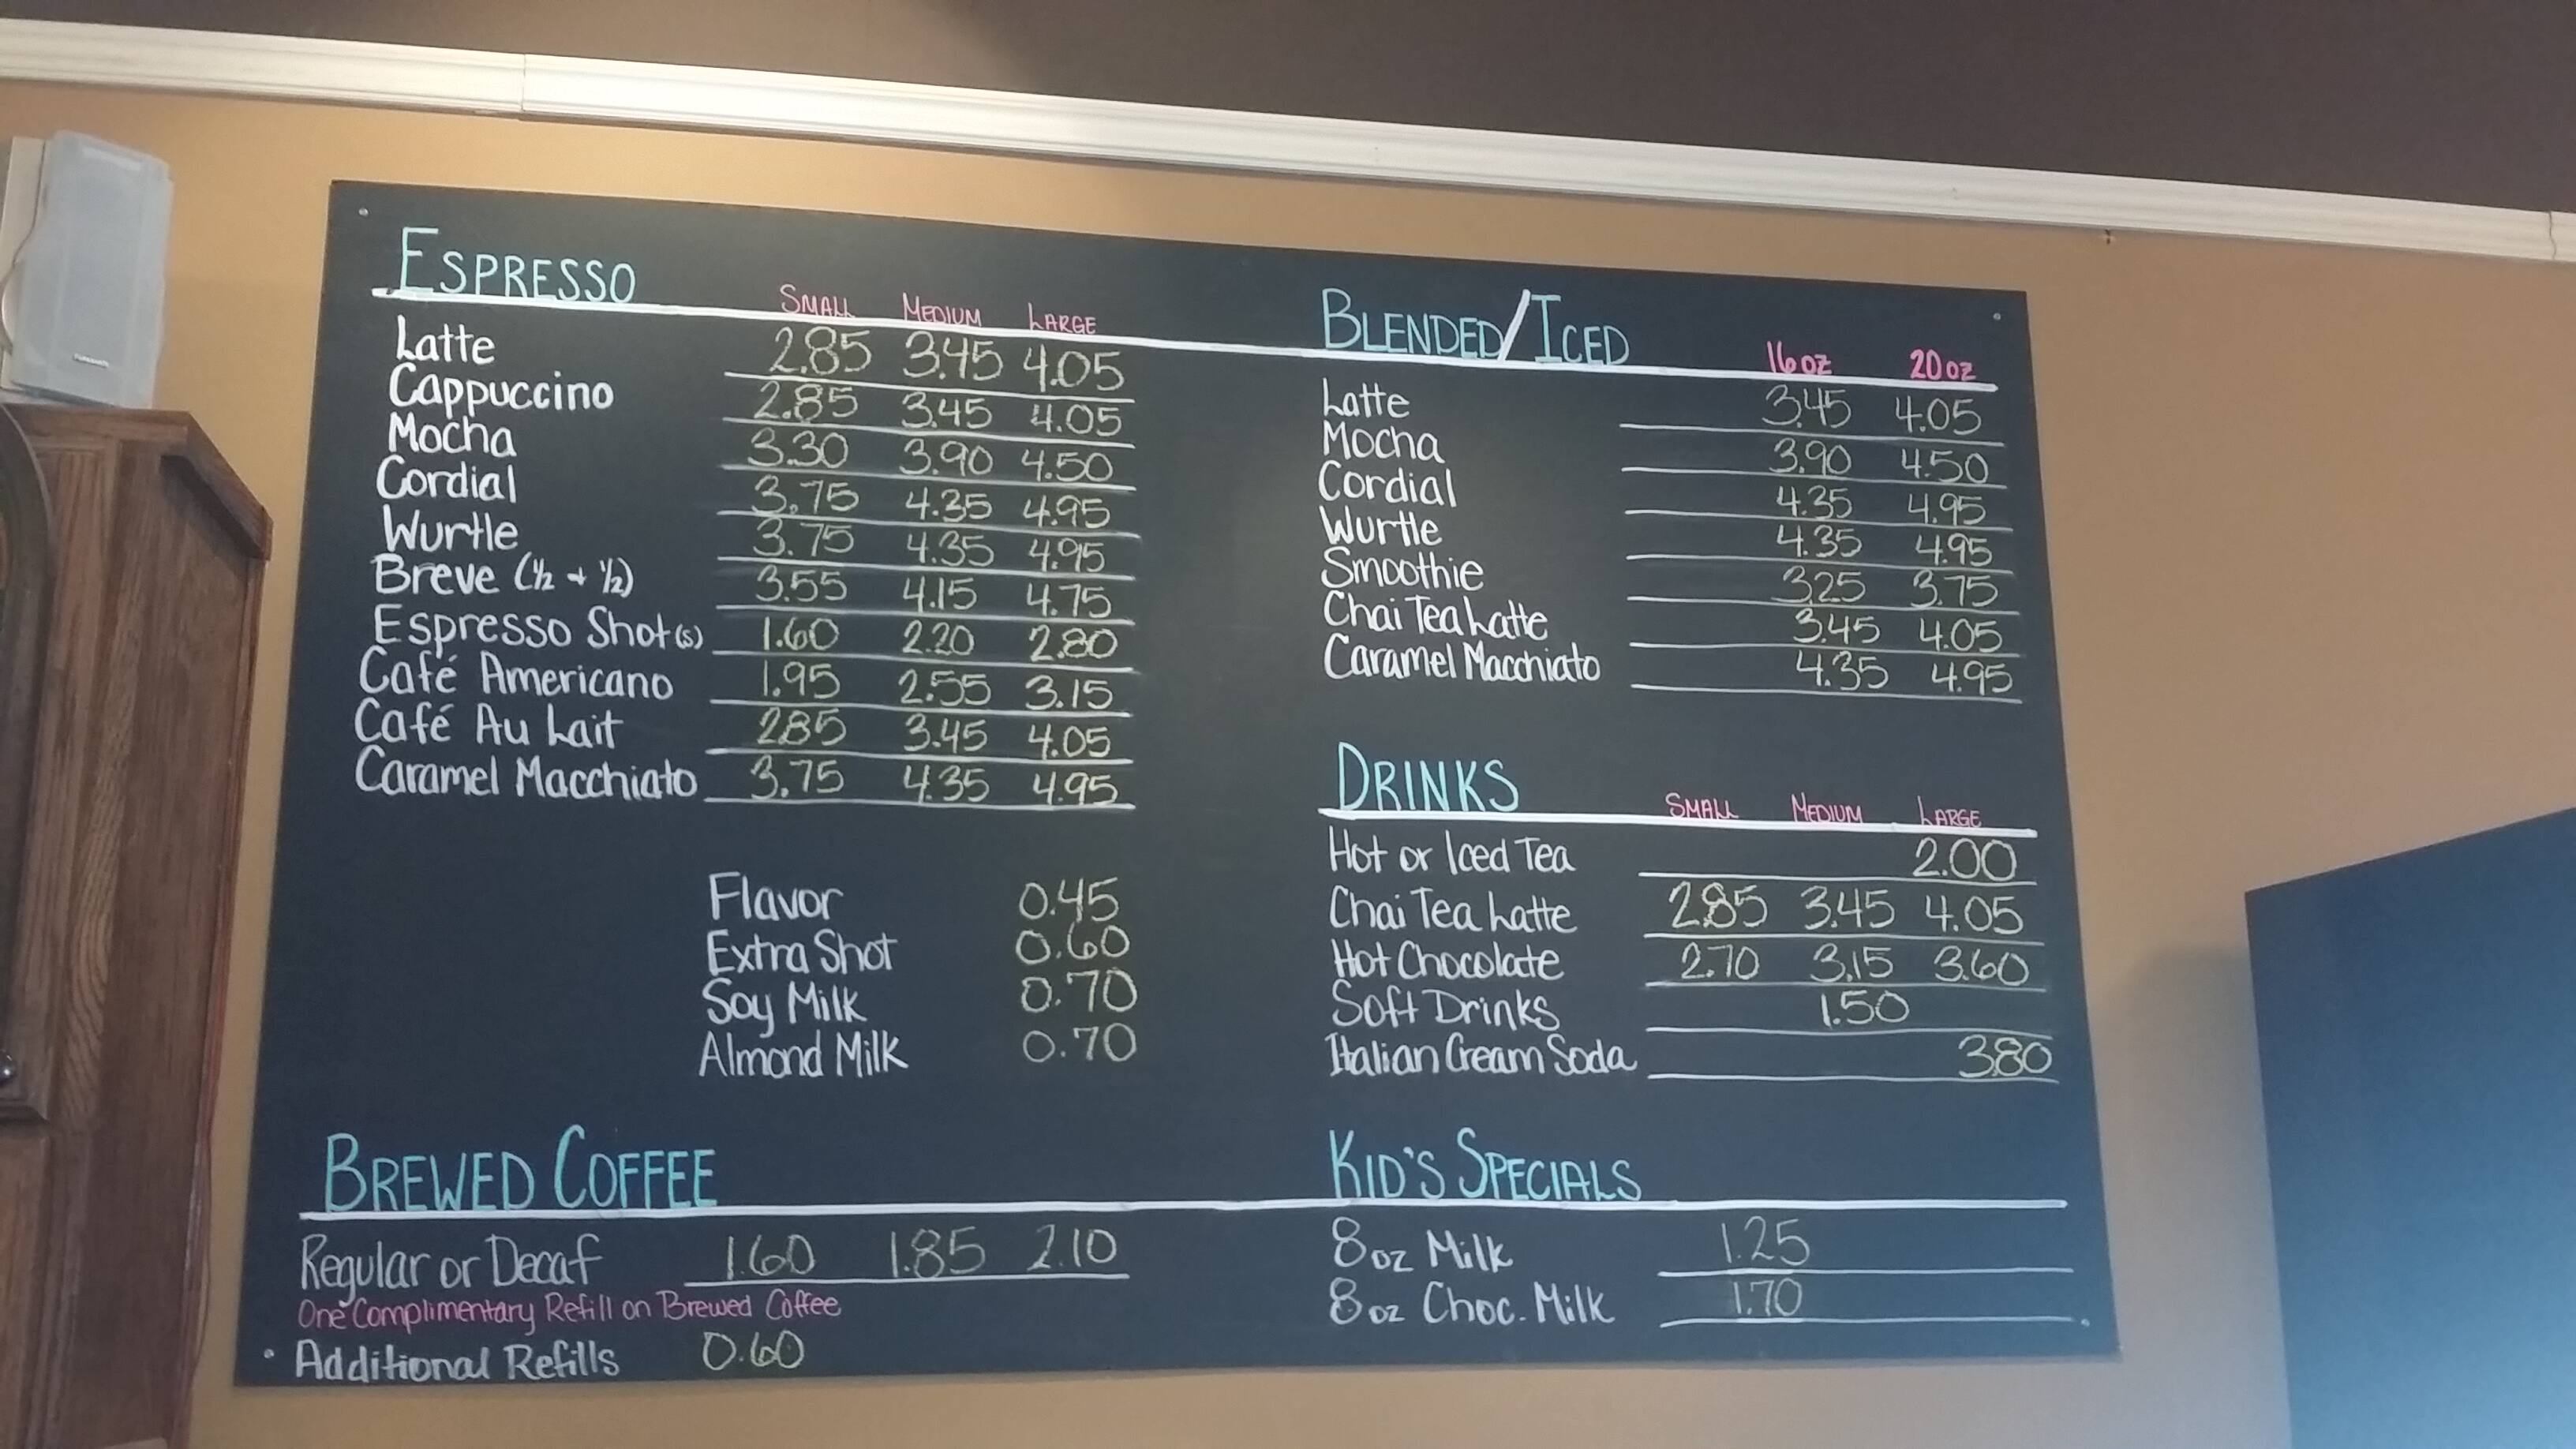 ESPRESSO
SMALL MEDIUM LARGE
Latte 2.85 3.45 4.05
Cappuccino 2.85 3.45 4.05
Mocha 3.30 3.90 4.50
Cordial 3.75 4.35 4.95
Wurtle 3.75 4.35 4.95
Breve (1/2 + 1/2) 3.55 4.15 4.75
Espresso Shot(s) 1.60 2.20 2.80
Café Americano 1.95 2.55 3.15
Café Au Lait 2.85 3.45 4.05
Caramel Macchiato 3.75 4.35 4.95
Flavor 0.45
Extra Shot 0.60
Soy Milk 0.70
Almond Milk 0.70
BREWED COFFEE
Regular or Decaf 1.60 1.85 2.10
One Complimentary Refill on Brewed Coffee
Additional Refills 0.60
BLENDED/ICED
16 oz 20 oz
Latte 3.45 4.05
Mocha 3.90 4.50
Cordial 4.35 4.95
Wurtle 4.35 4.95
Smoothie 3.25 3.75
Chai Tea Latte 3.45 4.05
Caramel Macchiato 4.35 4.95
DRINKS
SMALL MEDIUM LARGE
Hot or Iced Tea 2.00
Chai Tea Latte 2.85 3.45 4.05
Hot Chocolate 2.70 3.15 3.60
Soft Drinks 1.50
Italian Cream Soda 3.80
KID'S SPECIALS
8 oz Milk 1.25
8 oz Choc. Milk 1.70